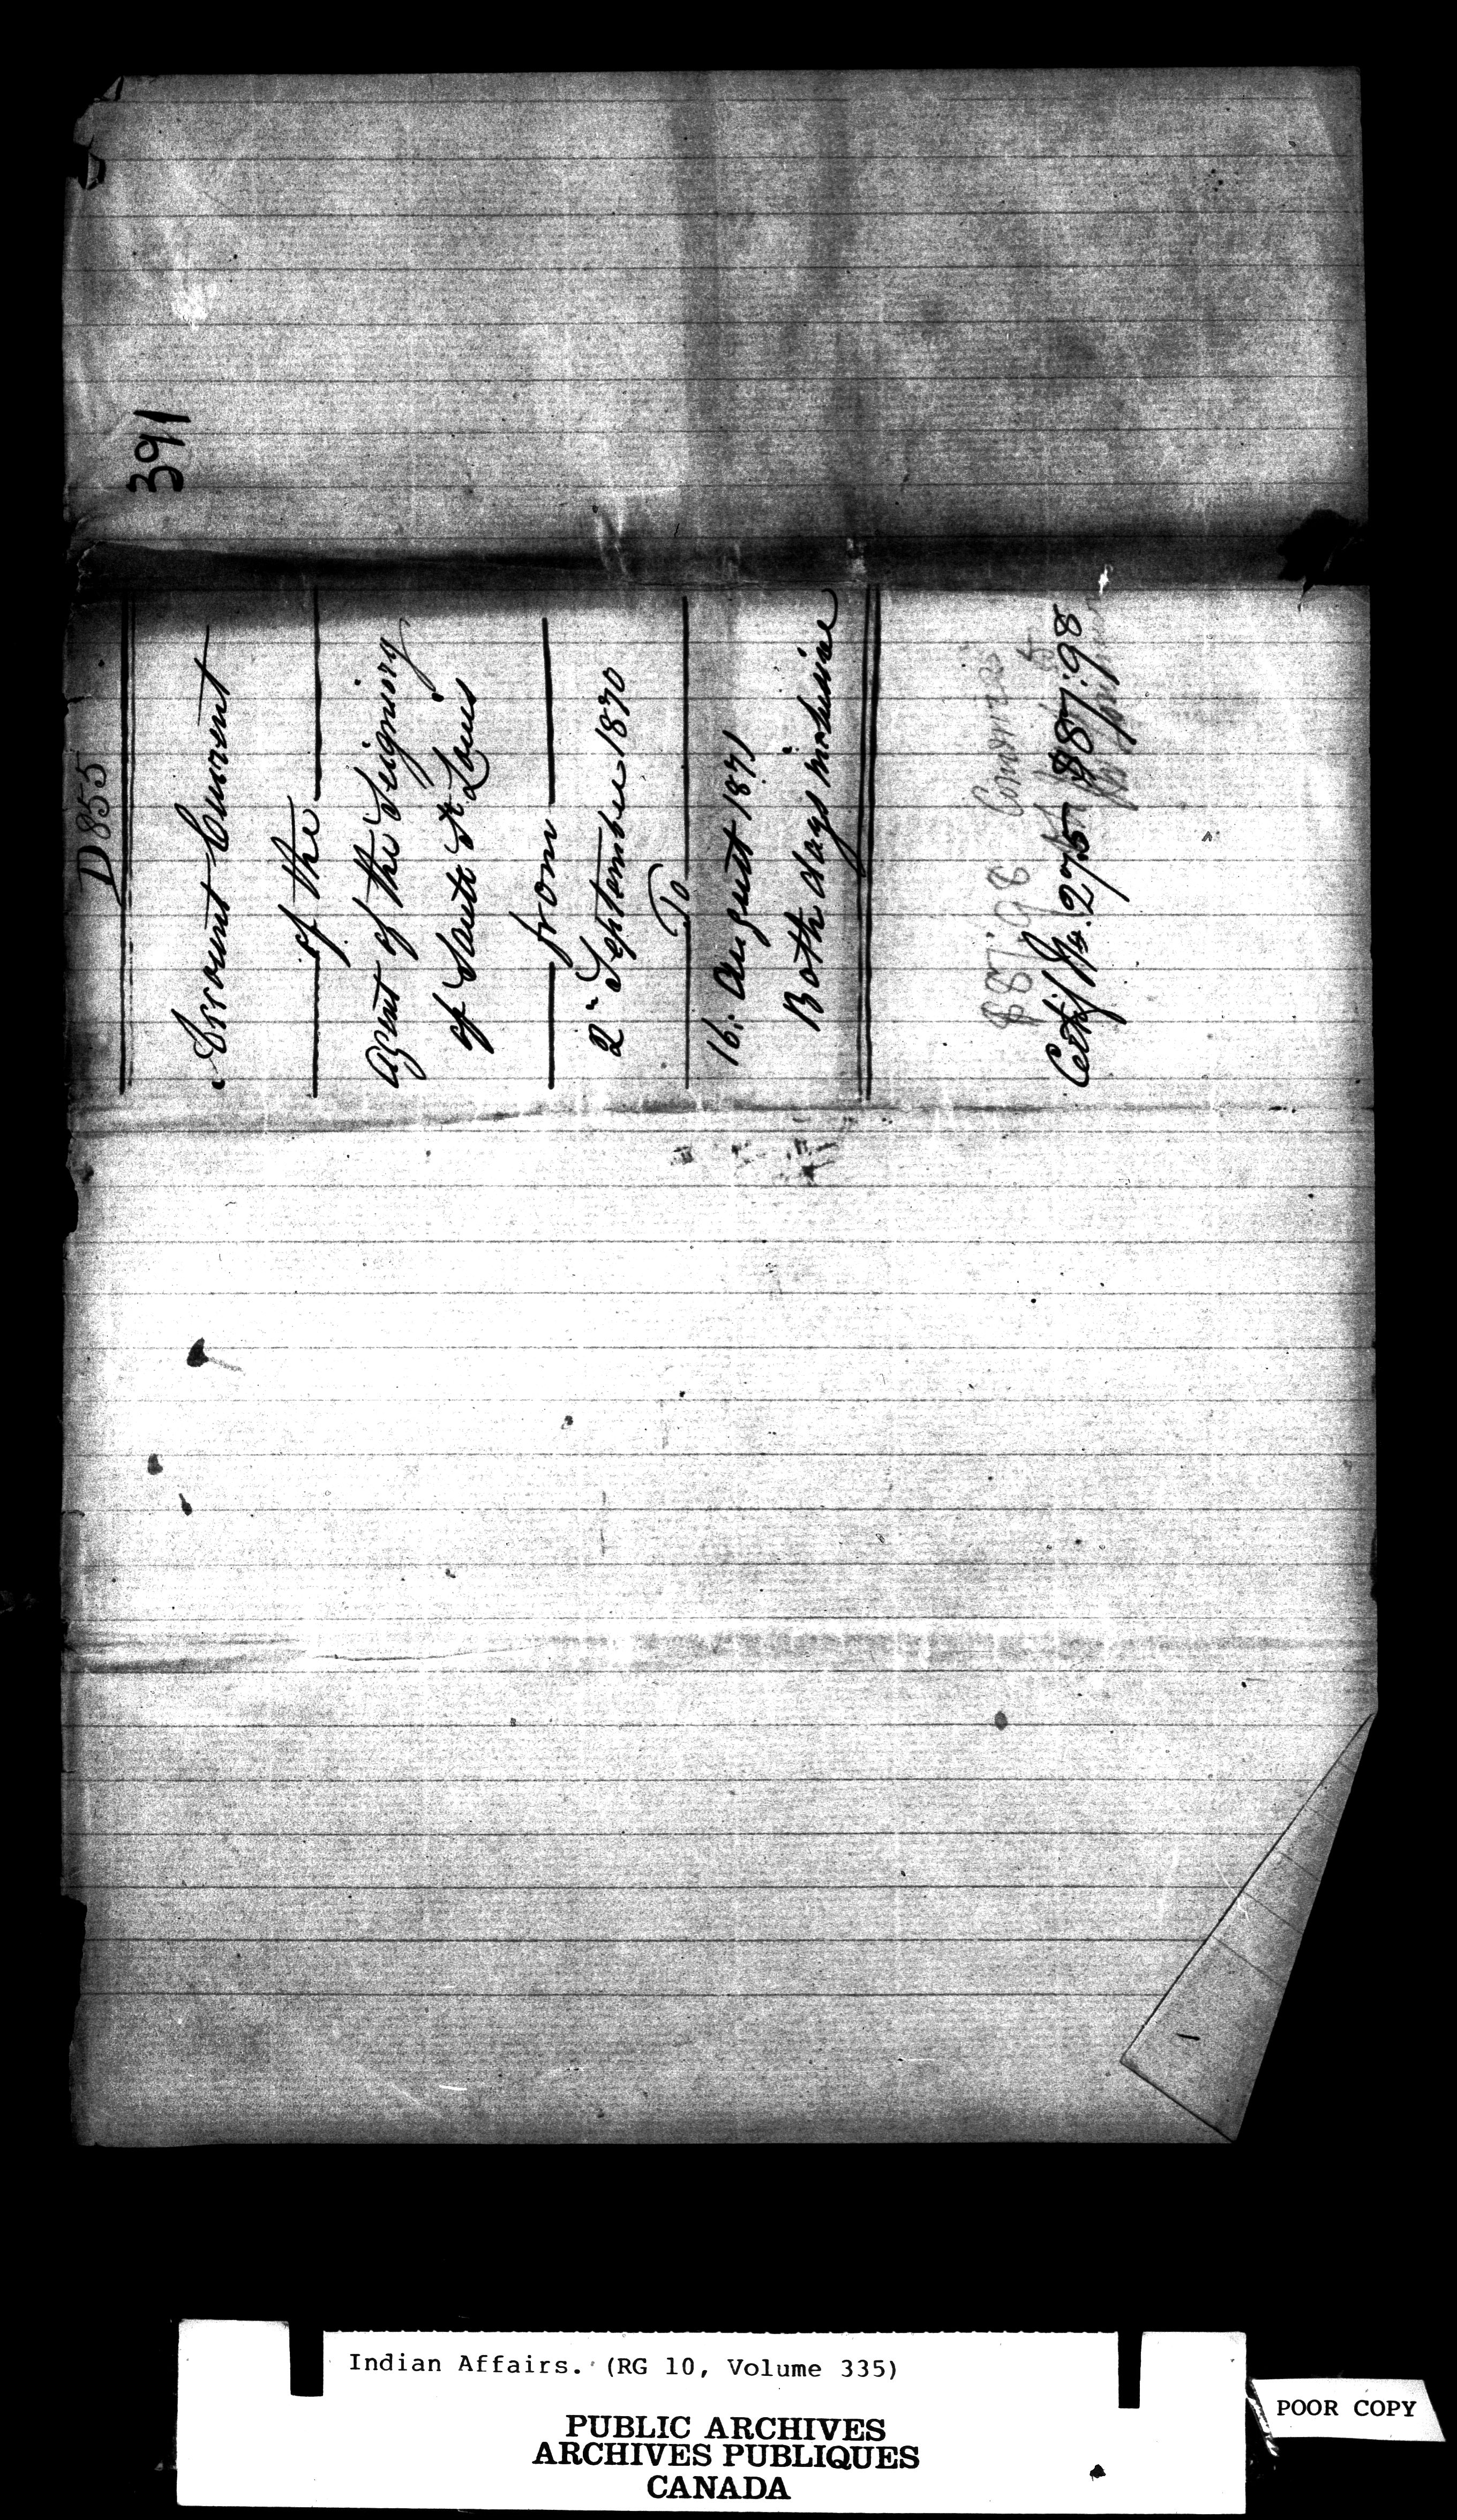 391
D855
Account Current
of the
Agent of the Seigniory
of Sault St Louis
from
2" September 1870
To
16: August 1871
Both days inclusive
$87.98 Commrs
Certif No. 275 $87.98
Indian Affairs. (RG 10, Volume 335)
PUBLIC ARCHIVES
ARCHIVES PUBLIQUES
CANADA
POOR COPY